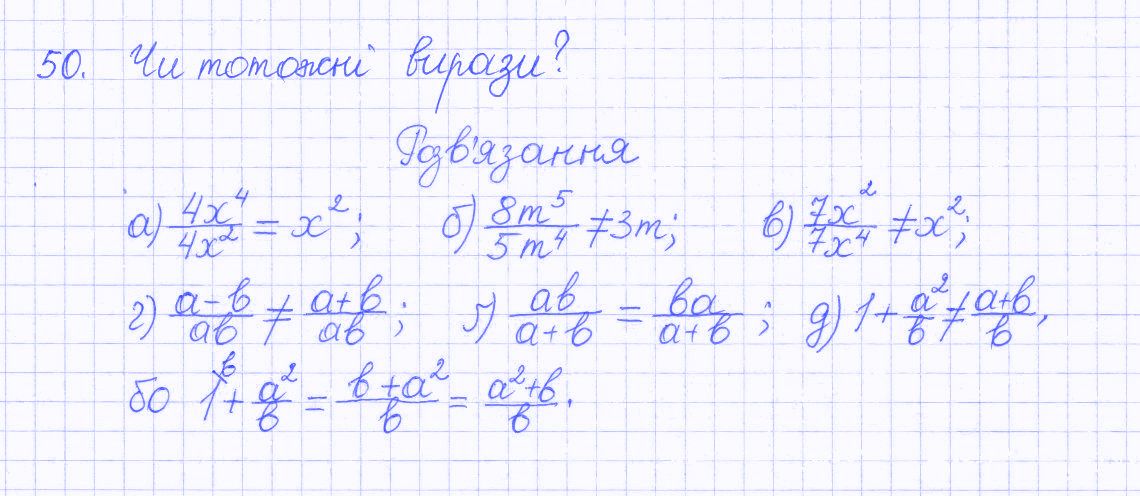 50. Чи тотожні вирази?
Розв'язання
а) 4x⁴/4x² = x²; б) 8m⁵/5m⁴ ≠ 3m; в) 7x²/7x⁴ ≠ x²;
г) a-b/ab ≠ a+b/ab; ґ) ab/a+b = ba/a+b; д) 1 + a²/b ≠ a+b/b,
бо 1^b + a²/b = b+a²/b = a²+b/b.